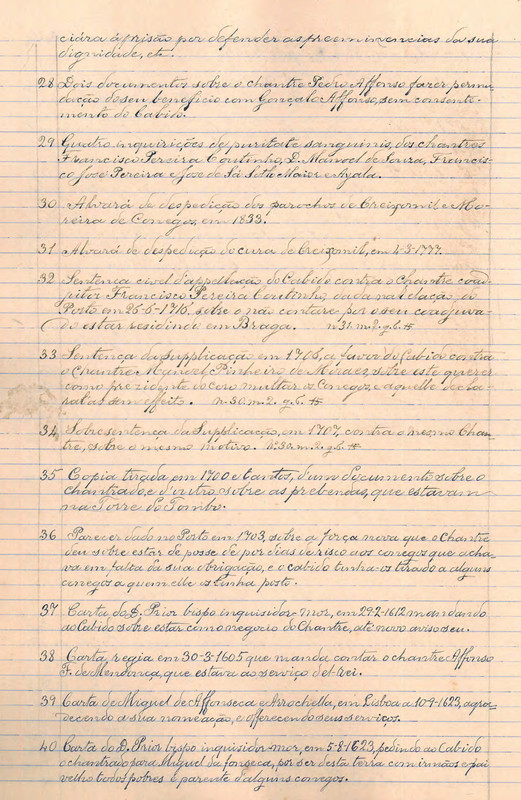 ciára á prisão por defender as preeminencias da sua
dignidade, etc.
28 Dois documentos sobre o chantre Pedro Affonso fazer permu-
dação do seu beneficio com Gonçalo Affonso, sem consenti-
mento do Cabido.
29 Quatro inquirições de puritate sanguinis, dos chantres
Francisco Pereira Coutinho, D. Manoel de Souza, Francis-
co José Pereira e José de Sá Sotto Maior e Ayala.
30 Alvará de despedição dos parochos de Creixomil e Mo-
reira de Conegos, em 1833.
31 Alvará de despedição do cura de Creixomil, em 4-3-1777.
32 Sentença civel d'appellação do Cabido contra o Chantre coad-
jutor Francisco Pereira Coutinho, dada na Relação do
Porto em 26-5-1716, sobre o não contar por o seu coadjuva-
do estar residindo em Braga. n. 31. m. 2. g. 6.
33 Sentença da Supplicação em 1706, a favor do Cabido contra
o Chantre Manoel Pinheiro de Miraes, sobre este querer
como prezidente do coro multar os Conegos, e aquelle decla-
ral as sem effeito. n. 30. m. 2. g. 6.
34 Sobresentença da Supplicação, em 1707, contra o mesmo Chan-
tre, sobre o mesmo motivo. n. 30. m. 2. g. 6.
35 Copia tirada em 1700 e tantos, d'um documento sobre o
chantrado, e d'outro sobre as prebendas, que estavam
na Torre do Tombo.
36 Parecer dado no Porto em 1703, sobre a força nova que o Chantre
deu sobre estar de posse de pôr dias de risco aos conegos que acha-
va em falta da sua obrigação, e o cabido tinha-os tirado a alguns
conegos a quem elle os tinha posto.
37 Carta do D. Prior bispo inquisidor-mor, em 29-2-1612 mandando
ao Cabido sobre estar como negocio do Chantre, até novo aviso seu.
38 Carta regia em 30-3-1605 que manda contar o chantre Affonso
F. de Mendonça, que estava ao serviço del-rei.
39 Carta de Miguel de Affonseca e Arrochella, em Lisboa a 10-9-1623, agra-
decendo a sua nomeação, e offerecendo seus serviços.
40 Carta do D. Prior bispo inquisidor-mor, em 5-8-1623, pedindo ao Cabido
o chantrado para Miguel da fonseca, por ser desta terra com irmãos e pai
velho todos pobres e parente d'alguns conegos.